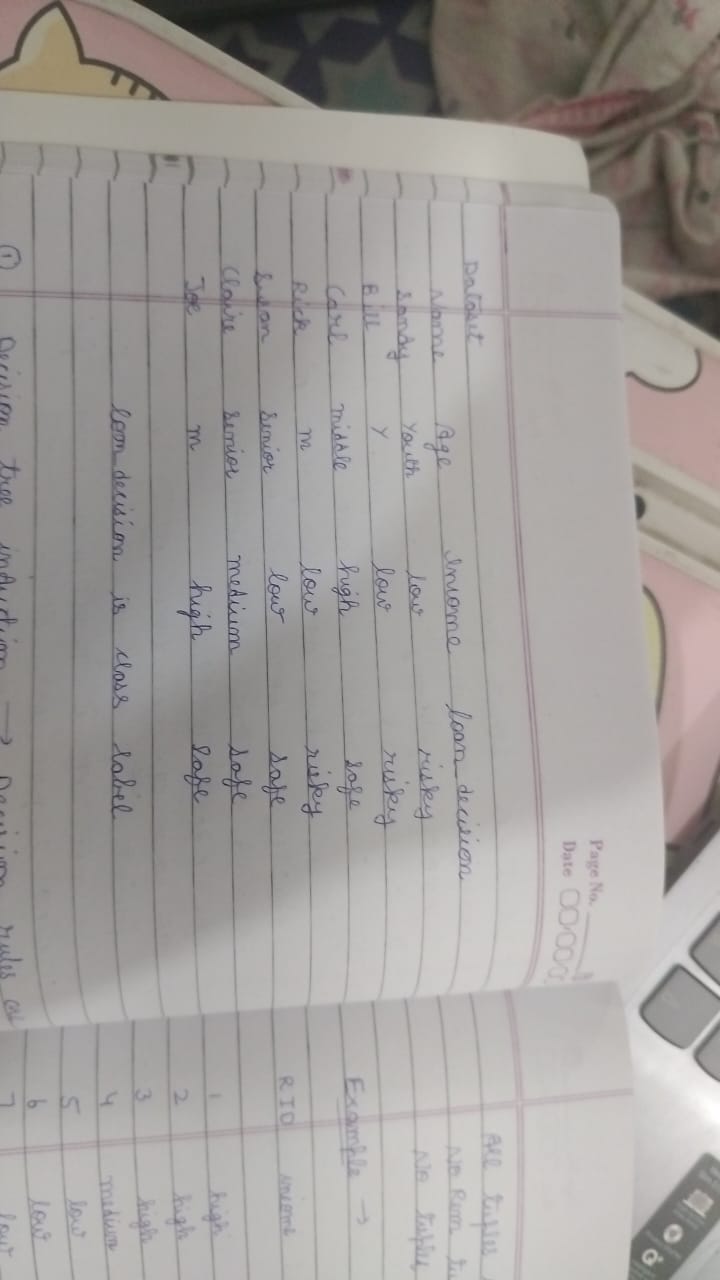 Page No.
Date
Dataset
Name Age Income loan decision
Sandy Youth low risky
Bill Y low risky
Carl middle high safe
Rick m low risky
Susan Senior low safe
Claire Senior medium safe
Joe m high safe
loan decision is class label
① Decision tree induction → Decision rules
All tuples
No
No tuples
Example →
RID income
1 high
2 high
3 high
4 medium
5 low
6 low
7 low